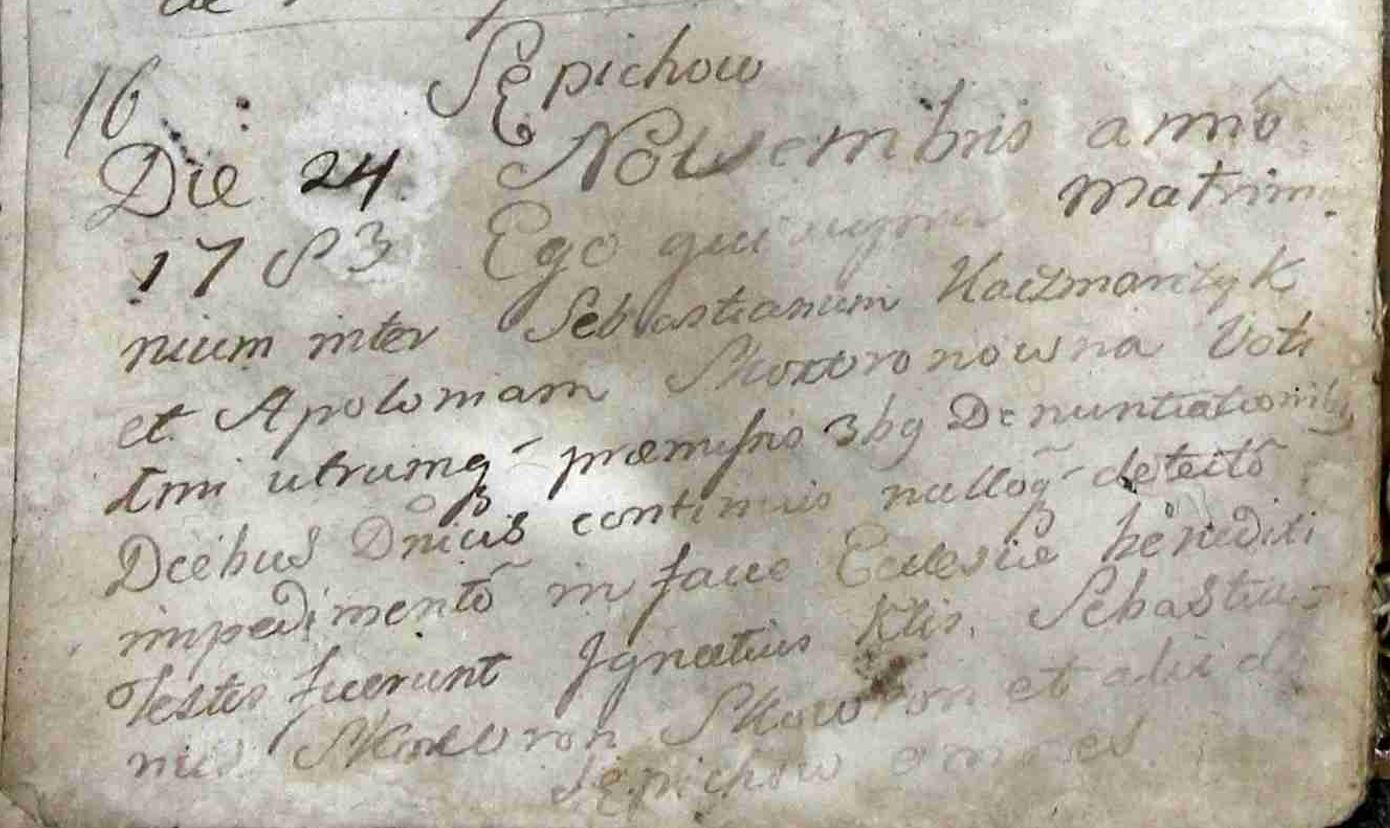 de
Sępichow
16
Die 24 Novembris annô
1783 Ego qui supra Matrimo
nium inter Sebastianum Kaczmarczyk
et Apoloniam Skowronowna Voti
imi utrumq̃ præmissis 3bg Denuntiationibg
Diebus Dnicis continuis nullõq̃ detectô
impedimentô in facie Ecclesiæ benedixi
Testes fuerunt Ignatius Klis, Sebastia=
nus Skowron Skowron et alii de
Sępichow omnes